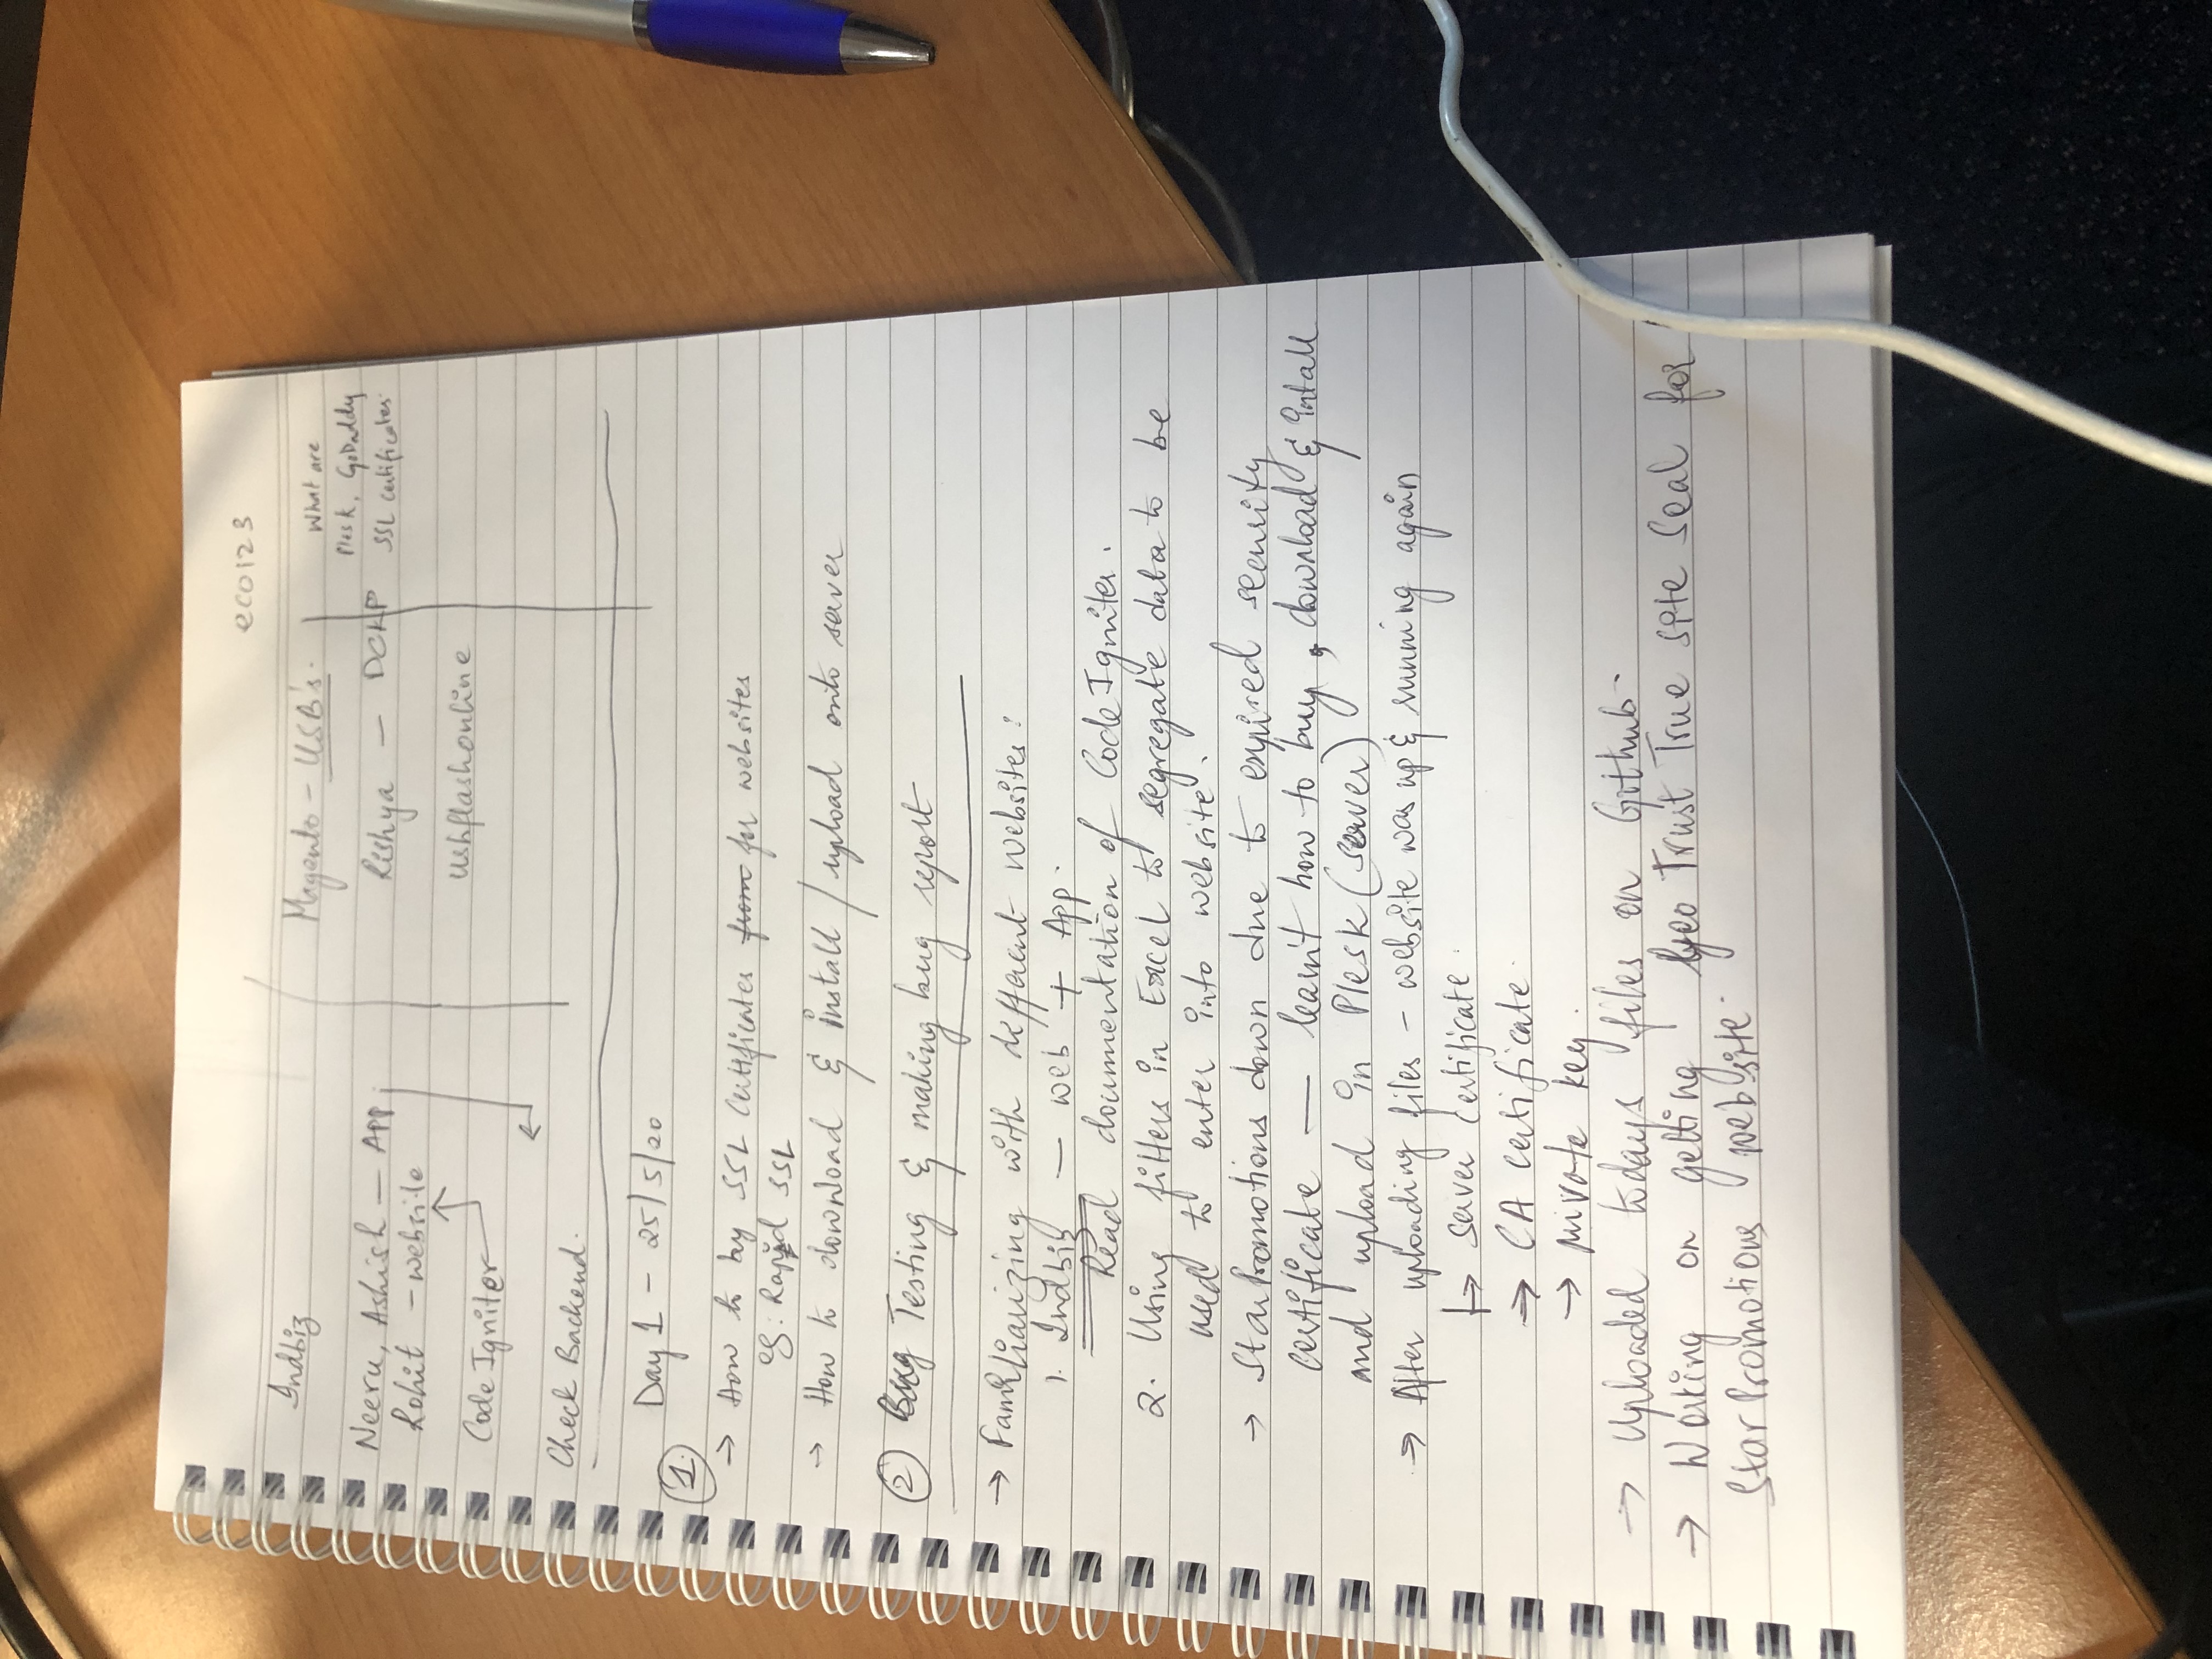 eco123
Indbiz
Neeru, Ashish — App
Rohit — website
Code Igniter
Check Backend.
Magento — USB's.
Rishya — DCKP
usbflashonline
What are
Plesk, GoDaddy
SSL certificates
Day 1 - 25/5/20
1.
→ How to by SSL Certificates from for websites
eg: Rapid SSL
→ How to download & install / upload onto server
2 Bug Testing & making bug report
→ Familiarizing with different websites:
1. Indbiz — web + App.
Read documentation of Code Igniter.
2. Using filters in Excel to segregate data to be
used to enter into website.
→ StarPromotions down due to expired security
certificate — learn't how to buy, download & intall
and upload in Plesk (server)
→ After uploading files - website was up & running again
→ server certificate.
→ CA certificate.
→ private key.
→ Uploaded todays files on Github.
→ Working on getting Geo Trust True site Seal for
Star Promotions website.